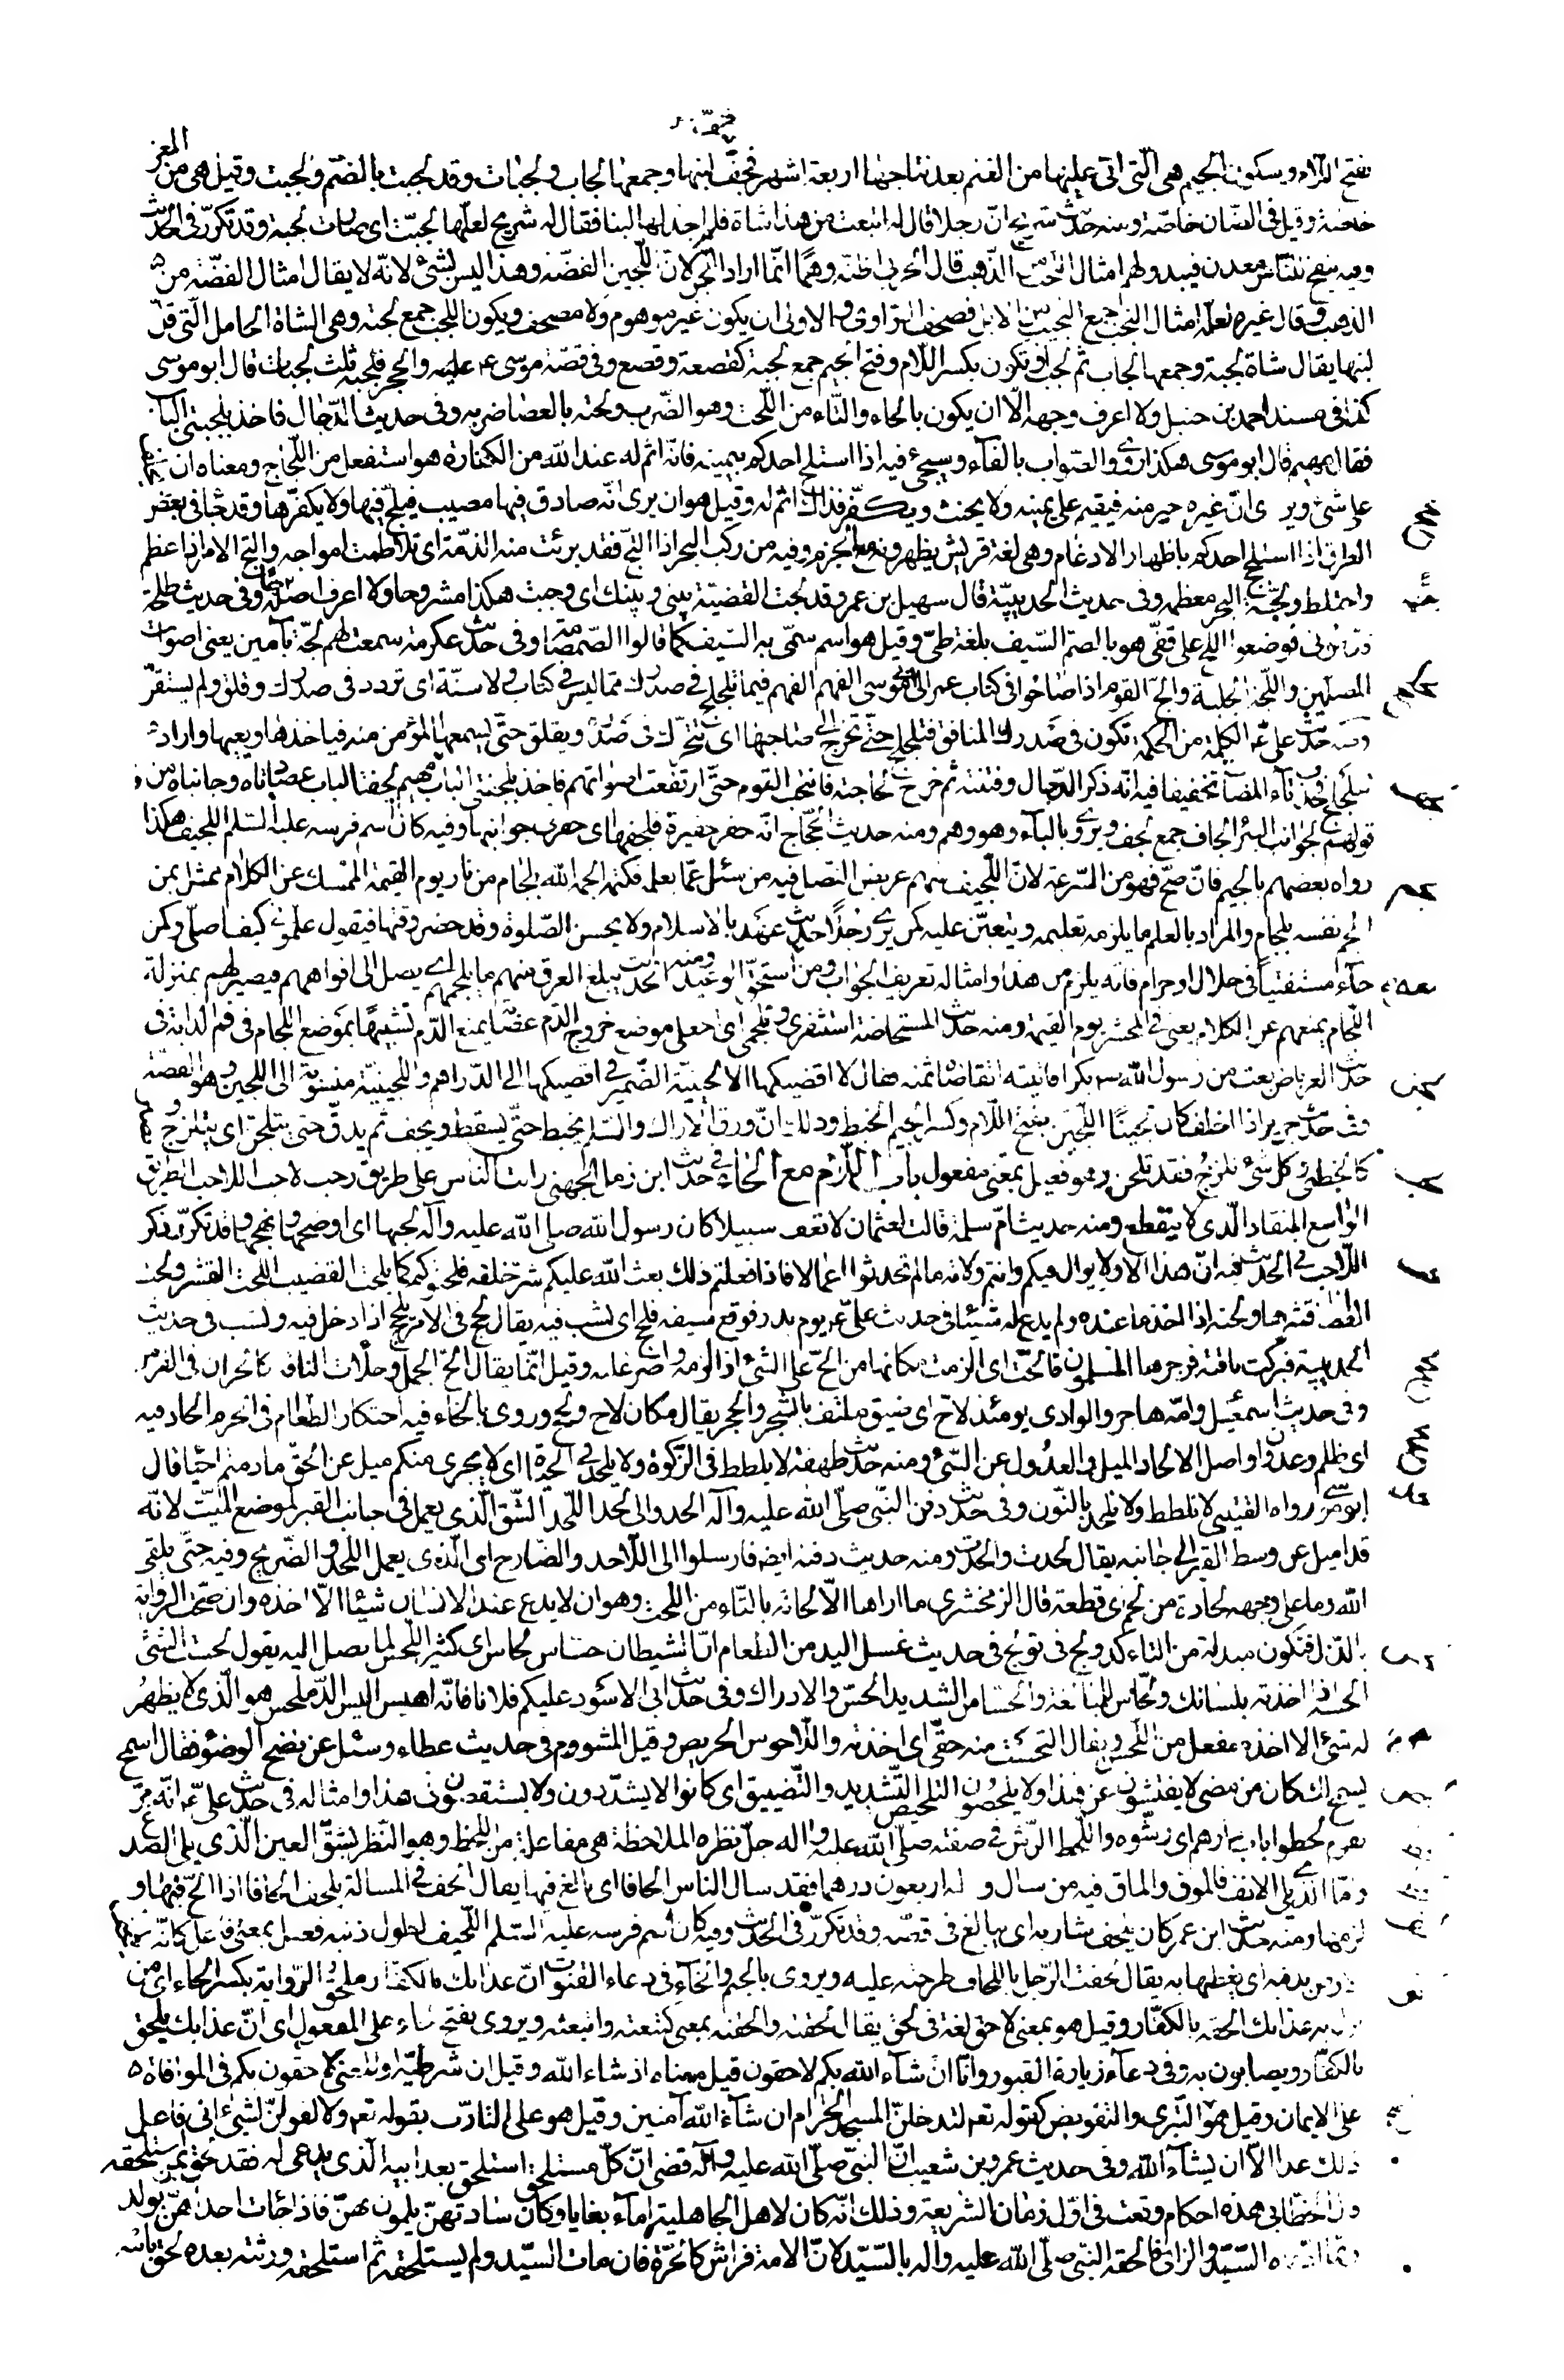 بفتح اللام وسكون الجيم هى الّتى اتى عليها من الغنم بعد نتاجها اربعة اشهر فخفّ لبنها وجمعها لجاب ولجبات وقد لجبت بالضمّ ولجبت وقيل هى من المعز
خاصّة وقيل فى الضان خاصّة ومنه حديث شريح انّ رجلا قال له ابتعت من هذا شاة فلم اجد لها لبنا فقال له شريح لعلّها لجبّت اى صارت لجبة وقد تكرّر فى الحديث
وفيه ينفتح للنّاس معدن فيبدو لهم امثال اللجب من الذّهب قال الحربى اظنّه وهما انّما اراد اللّجن لانّ اللّجين الفضّة وهذا ليس بشئ لانّه لا يقال امثال الفضّة من
الذهب وقال غيره لعلّه امثال النجب جمع النجيب من الابل فصحّف الرّاوى والاولى ان يكون غير موهوم ولا مصحف ويكون اللجب جمع لجبة وهى الشاة الحامل الّتى قلّ
لبنها يقال شاة لجبة وجمعها لجاب ثم لجب او يكون بكسر اللام وفتح الجيم جمع لجبة كقصعة وقصع وفى قصّة موسى ع والحجر فلجبه ثلث لجبات قال ابو موسى
كذا فى مسند احمد بن حنبل ولا اعرف وجهه الّا ان يكون بالحاء والتّاء من اللّحت وهو الضّرب ولحته بالعصا ضربه وفى حديث الدّجّال فاخذ بلجبتى الباب
فقال مهيم قال ابو موسى هكذا روى والصّواب بالفاء وسيجئ فيه اذا استلج احدكم بيمينه فانّه اثم له عند الله من الكفّارة هو استفعل من اللّجاج ومعناه ان
على شئ ويرى انّ غيره خير منه فيقيم على يمينه ولا يحنث ويكفّر فذاك اثم له وقيل هو ان يرى انّه صادق فيها مصيب فيلجّ فيها ولا يكفّرها وقد جاء فى بعض
الطرق اذا استلجج احدكم باظهار الادغام وهى لغة قريش يظهرونه مع الجزم وفيه من ركب البحر اذا التجّ فقد برئت منه الذمّة اى تلاطمت امواجه والتج الامر اذا عظم
واختلط ولجّة البحر معظمه وفى حديث الحديبيّة قال سهيل بن عمرو قد لجت القضيّة بينى وبينك اى وجبت هكذا مشروحا ولا اعرف اصله وفى حديث طلحة
فوضعوا اللج على قفىّ هو بالضم السّيف بلغة طىّ وقيل هو اسم سمّى به السّيف كما قالوا الصّمصامة وفى حديث عكرمة سمعت لهم لجّة بآمين يعنى اصوات
المصلّين واللّجة الجلبة والجّ القوم اذا صاحوا فى كتاب عمر الى ابى موسى الفهم الفهم فيما تلجلج فى صدرك ممّا ليس فى كتاب ولا سنّة اى تردد فى صدرك وقلق ولم يستقرّ
ومنه حديث على ع الكلمة من الحكمة تكون فى صدر المنافق فتلجلج حتّى تخرج الى صاحبها اى تتحرّك فى صدره ويقلق حتّى يسمعها المؤمن منه فياخذها ويعيها واراد
تتلجلج فحذف تاء المضارع تخفيفا فيه انّه ذكر الدّجّال وفتنته ثم خرج لحاجته فانتحب القوم حتّى ارتفعت اصواتهم فاخذ بلجفتى الباب فقال مهيم لجفتا الباب عضادتاه وجانباه من
قولهم لجوانب البئر الجاف جمع لجف ويروى بالباء وهو وهم ومنه حديث الحجّاج انّه حفر حفيرة فلجفها اى حفر فى جوانبها وفيه كان اسم فرسه عليه السّلم اللجيف هكذا
رواه بعضهم بالجيم فان صحّ فهو من السّرعة لانّ اللّجيف سهم عريض النّصل فيه من سئل عمّا يعلمه فكتمه الجمه الله بلجام من نار يوم القيمة الممسك عن الكلام ممثّل بمن
الجم نفسه بلجام والمراد بالعلم ما يلزمه تعليمه ويتعيّن عليه كمن يرى رجلا حديث عهد بالاسلام ولا يحسن الصّلوة وقد حضر وقتها فيقول علّمونى كيف اصلّى وكمن
جاء مستفتيا فى حلال او حرام فانّه يلزم من هذا وامثاله تعريف الجواب ومن منعه استحقّ الوعيد ومنه الحديث يبلغ العرق منهم ما يلجمهم اى يصل الى افواههم فيصير لهم بمنزلة
اللّجام يمنعهم عن الكلام يعنى فى المحشر يوم القيمة ومنه حديث المستحاضة استثفرى وتلجمى اى اجعلى موضع خروج الدّم عصابة يمنع الدّم تشبيها بموضع اللجام فى فم الدابة فى
حديث العرباض بعت من رسول الله ص بكرا فاتيته اتقاضاه ثمنه فقال لا اقضيكها الا لجينيّة الضّمير فى اقضيكها الى الدّراهم واللّجينيّة منسوبة الى اللجين وهو الفضّة
وفى حديث جرير اذا اخلف كان لجينا اللّجين بفتح اللام وكسر الجيم الخبط وذلك انّ ورق الاراك والسّلم يخبط حتّى يسقط ويجف ثم يدقّ حتى يتلجّن اى يتلزّج
كالخطمى وكل شئ تلزّج فقد تلجّن وهو فعيل بمعنى مفعول باب اللام مع الحاء فى حديث ابن زمل الجهنى رايت النّاس على طريق رحب لاحب اللاحب الطريق
الواسع المنقاد الّذى لا ينقطع ومنه حديث امّ سلمة قالت لعثمان لا تعف سبيلا كان رسول الله صلى الله عليه وآله لحبها اى اوضحها ونهجها وقد تكرّر ذكر
اللّاحب فى الحديث فيه انّ هذا الامر لا يزال فيكم وانتم ولاته ما لم تحدثوا اعمالا فاذا فعلتم ذلك بعث الله عليكم شرّ خلقه فلحتوكم كما يلحت القضيب اللحت القشر ولحت
العصا قشرها ولحته اذا اخذ ما عنده ولم يدع له شيئا فى حديث علىّ ع يوم بدر فوقع سيفه فلحج اى نشب فيه يقال لحج فى الامر يلحج اذا دخل فيه ونشب فى حديث
الحديبية فبركت ناقته فزجرها المسلمون فالحّت اى لزمت مكانها من الحّ على الشئ اذا لزمه واصرّ عليه وقيل انّما يقال الحّ الجمل وخلأت الناقة كالحران فى الفرس
وفى حديث اسمعيل وامّه هاجر والوادى يومئذ لاحّ اى ضيق ملتف بالشّجر والحجر يقال مكان لاح ولحح وروى بالخاء فيه احتكار الطعام فى الحرم الحاد فيه
اى ظلم وعدوان واصل الالحاد الميل والعدول عن الشّئ ومنه حديث طهفة لا يلطط فى الزّكوة ولا يلحد فى الحيوة اى لا يجرى منكم ميل عن الحقّ ما دمتم احيا قال
ابو موسى رواه القتيبى لا نلطط ولا نلحد بالنّون وفى حديث دفن النبى صلّى الله عليه وآله الحدوا لى لحدا اللّحد الشّق الّذى يعمل فى جانب القبر لموضع الميّت لانّه
قد اميل عن وسط القبر الى جانبه يقال لحدت والحدت ومنه حديث دفنه ايضا فارسلوا الى اللّاحد والضّارح اى الّذى يعمل اللحد والضّريح وفيه حتّى يلقى
الله وما على وجهه لحادة من لحم اى قطعة قال الزمخشرى ما اراها الّا لحاتة بالتّاء من اللحت وهو ان لا يدع عند الانسان شيئا الّا اخذه وان صحّت الرواية
بالدّال فتكون مبدلة من التاء كدولج فى تولج فى حديث غسل اليد من الطعام انّ الشيطان حسّاس لحّاس اى كثير اللّحس لما يصل اليه يقول لحست الشئ
الحسه اذا اخذته بلسانك ولحّاس للمبالغة والحسّاس الشديد الحسّ والادراك وفى حديث ابى الاسود عليكم فلانا فانّه اهيس اليس الدّ ملحس هو الّذى لا يظهر
له شئ الا اخذه مفعل من اللّحس ويقال التحست منه حقّى اى اخذته واللّاحوس الحريص وقيل المشووم فى حديث عطاء وسئل عن نضح الوضوء فقال اسمح
يسمح لك كان من مضى لا يفتّشون عن هذا ولا يلحّصون التلحيص التّشديد والتّضييق اى كانوا لا يشدّدون ولا يستقصون فى هذا وامثاله فى حديث علىّ ع انّه مرّ
بقوم لحطوا باب دارهم اى رشّوه واللّحط الرّشّ فى صفته صلّى الله عليه وآله جلّ نظره الملاحظة هى مفاعلة من اللحظ وهو النّظر بشقّ العين الّذى يلى الصّدغ
وامّا الّذى يلى الانف فالموق والماق فيه من سال وله اربعون درهما فقد سال الناس الحافا اى بالغ فيها يقال الحف فى المسالة يلحف الحافا اذا الحّ فيها و
لزمها ومنه حديث ابن عمر كان يلحف شاربه اى يبالغ فى قصّه وقد تكرّر فى الحديث وفيه كان اسم فرسه عليه السّلم اللّحيف لطول ذنبه فعيل بمعنى فاعل كانّه
الارض بذنبه اى يغطيها به يقال لحفت الرّجل باللّحاف طرحته عليه ويروى بالجيم والخاء فى دعاء القنوت انّ عذابك بالكفّار ملحق الرّواية بكسر الحاء اى من
نزل به عذابك الحقه بالكفّار وقيل هو بمعنى لاحق لغة فى لحق يقال لحقته والحقته بمعنى كتبعته واتبعته ويروى بفتح الحاء على المفعول اى انّ عذابك يلحق
بالكفّار ويصابون به وفى دعاء زيارة القبور وانّا ان شاء الله بكم لاحقون قيل معناه اذ شاء الله وقيل ان شرطيّة والمعنى لاحقون بكم فى الموافاة
على الايمان وقيل هو التبرّى والتفويض كقوله تعه لتدخلنّ المسجد الحرام ان شاء الله آمنين وقيل هو على التادّب بقوله تعه ولا تقولنّ لشئ انى فاعل
ذلك غدا الّا ان يشاء الله وفى حديث عمرو بن شعيب انّ النبىّ صلّى الله عليه وآله قضى انّ كلّ مستلحق استلحق بعد ابيه الّذى يدعى له فقد لحق بمن استلحقه
قال الخطّابى هذه احكام وقعت فى اوّل زمان الشّريعة وذلك انّه كان لاهل الجاهلية اماء بغايا وكان سادتهنّ يلمّون بهنّ فاذا جائت احداهنّ بولد
ربّما ادّعاه السّيّد والزانى فالحقه النبّى صلّى الله عليه وآله بالسّيّد لانّ الامة فراش كالحرّة فان مات السيّد ولم يستلحقه ثم استلحقه ورثته بعده لحق بابيه